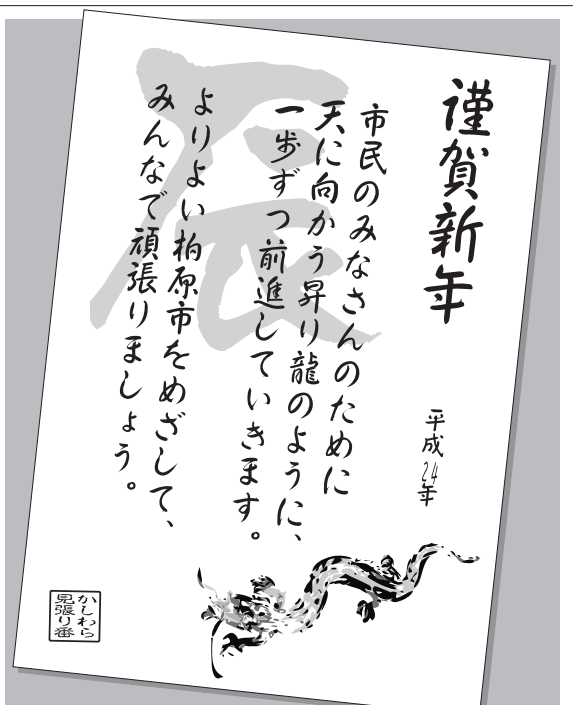 謹賀新年
平成24年
市民のみなさんのために
天に向かう昇り龍のように、
一歩ずつ前進していきます。
よりよい柏原市をめざして、
みんなで頑張りましょう。
辰
かしわら
見張り番